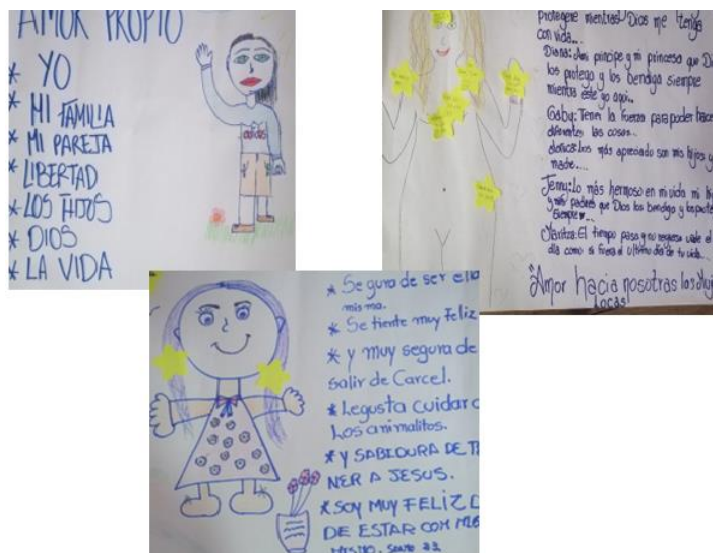 AMOR PROPIO
* YO
* MI FAMILIA
* MI PAREJA
* LIBERTAD
* LOS HIJOS
* DIOS
* LA VIDA
adidas
protegere mientras Dios me tenga
con vida...
Diana: Ami principe y mi princesa que Di
los protega y los bendiga siempre
mientra este yo aqui...
Gaby: Tener la fuerza para poder hace
diferentes las cosas...
los más apreciado son mis hijos y
madre...
Jenny: Lo más hermoso en mi vida mi hi
y mis padres que Dios los bendiga y los prote
siempre...
Maritza: El tiempo pasa y no regresa vale el
dia como si fuera el ultimo dia de tu vida...
"Amor hacia nosotras las
locas
* Segura de ser ella
misma.
* Se siente muy Feliz
* y muy segura de
salir de Carcel.
* Legusta cuidar a
Los animalitos.
* Y SABIDURA DE TE
NER A JESUS.
* SOY MUY FELIZ D
DE ESTAR COM MIG